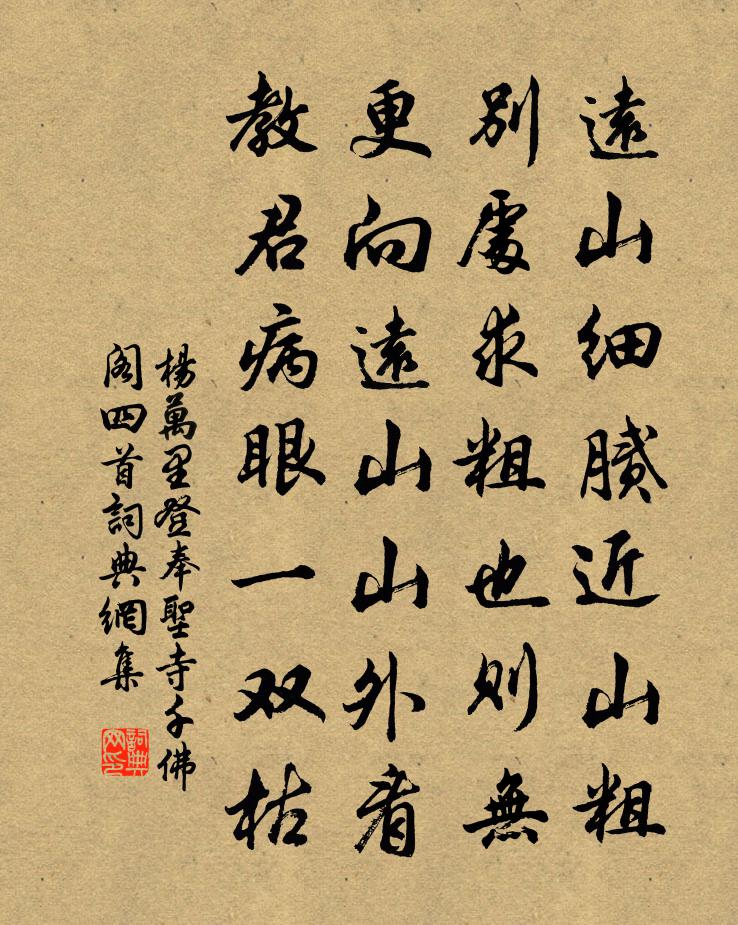 遠山細膩近山粗
別處求粗也則無
更向遠山山外看
教君病眼一双枯
楊萬里登奉聖寺千佛
閣四首詞典網集
詞典
网印